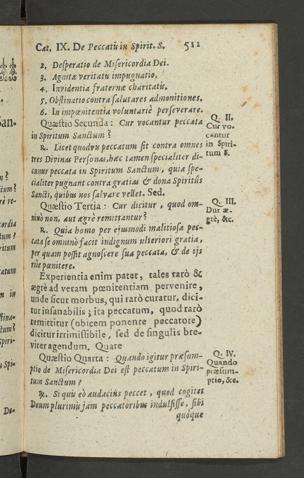 Cat. IX. De Peccatis in Spirit. S. 511
2. Desperatio de Misericordia Dei.
3. Agnitæ veritatis impugnatio.
4. Invidentia fraternæ charitatis.
5. Obstinatio contra salutares admonitiones.
6. In impœnitentia voluntariè perseverare.
Quæstio Secunda: Cur vocantur peccata
in Spiritum Sanctum?
R. Licet quodvis peccatum sit contra omnes
tres Divinas Personas, hæc tamen specialiter di-
cuntur peccata in Spiritum Sanctum, quia spe-
cialiter pugnant contra gratias & dona Spiritûs
Sancti, quibus nos salvare vellet. Sed.
Quæstio Tertia: Cur dicitur, quod om-
ninò non, aut ægrè remittantur?
R. Quia homo per ejusmodi malitiosa pec-
cata se omninò facit indignum ulteriori gratia,
per quam possit agnoscere sua peccata, & de iis
ritè pœnitere.
Experientia enim patet, tales rarò &
ægrè ad veram pœnitentiam pervenire,
unde sicut morbus, qui rarò curatur, dici-
tur insanabilis; ita peccatum, quod rarò
remittitur (obicem ponente peccatore)
dicitur irrimissibile, sed de singulis bre-
viter agendum. Quare
Quæstio Quarta: Quando igitur præsum-
ptio de Misericordia Dei est peccatum in Spiri-
tum Sanctum?
R. Si quis eò audaciùs peccet, quod cogitet
Deum plurimis jam peccatoribus indulsisse, sibi
quoque
Q. II.
Cur vo-
cantur
in Spiri-
tum S.
Q. III.
Dur æ-
grè, &c.
Q. IV.
Quando
præsum-
ptio, &c.